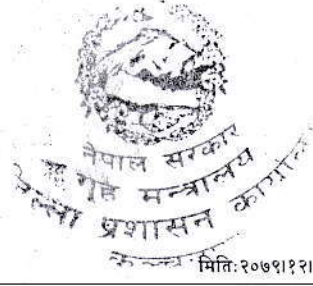 नेपाल सरकार
गृह मन्त्रालय
जिल्ला प्रशासन
मिति:२०७९।१२।